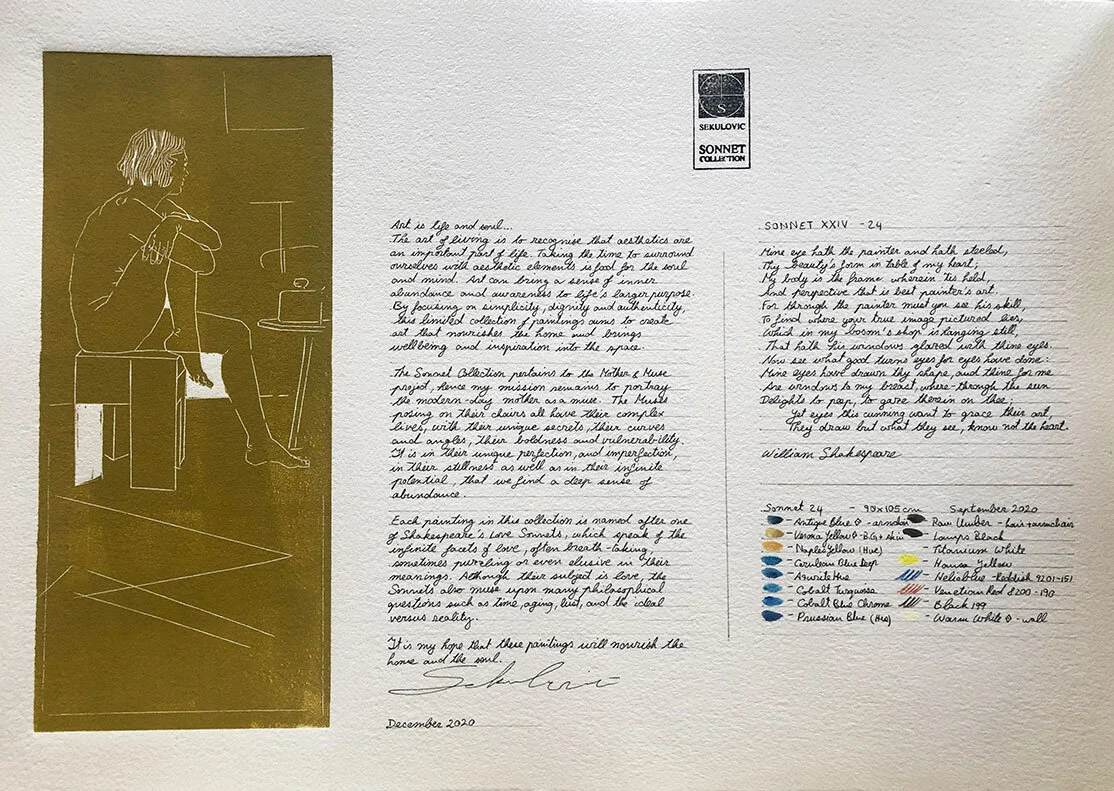 SEKULOVIC
SONNET
COLLECTION
Art is life and soul...
The art of living is to recognise that aesthetics are
an important part of life. Taking the time to surround
ourselves with aesthetic elements is food for the soul
and mind. Art can bring a sense of inner
abundance and awareness to life's larger purpose.
By focusing on simplicity, dignity and authenticity,
this limited collection of paintings aims to create
art that nourishes the home and brings
wellbeing and inspiration into the space.
The Sonnet Collection pertains to the Mother & Muse
project, hence my mission remains to portray
the modern-day mother as a muse. The Muses
posing on their chairs all have their complex
lives, with their unique secrets, their curves
and angles, their boldness and vulnerability.
It is in their unique perfection, and imperfection,
in their stillness as well as in their infinite
potential, that we find a deep sense of
abundance.
Each painting in this collection is named after one
of Shakespeare's Love Sonnets, which speak of the
infinite facets of love, often breath-taking,
sometimes puzzling or even elusive in their
meanings. Although their subject is love, the
Sonnets also muse upon many philosophical
questions such as time, aging, lust, and the ideal
versus reality.
It is my hope that these paintings will nourish the
home and the soul.
Sekulovic
December 2020
SONNET XXIV - 24
Mine eye hath the painter and hath steeled,
Thy beauty's form in table of my heart;
My body is the frame wherein 'tis held,
And perspective that is best painter's art.
For through the painter must you see his skill,
To find where your true image pictured lies,
Which in my bosom's shop is hanging still,
That hath his windows glazed with thine eyes.
Now see what good turns eyes for eyes have done:
Mine eyes have drawn thy shape, and thine for me
Are windows to my breast, where-through the sun
Delights to peep, to gaze therein on thee;
Yet eyes this cunning want to grace their art,
They draw but what they see, know not the heart.
William Shakespeare
Sonnet 24 - 90x105cm September 2020
- Antique Blue ◊ - armchair
- Verona Yellow ◊ - B.G. + skin
- Naples Yellow (Hue)
- Cerulean Blue Deep
- Azurite Hue
- Cobalt Turquoise
- Cobalt Blue Chrome
- Prussian Blue (Hue)
- Raw Umber - hair + armchair
- Lamp Black
- Titanium White
- Hansa Yellow
- Helioblue - Reddish 9201-151
- Venetian Red 8200-190
- Black 199
- Warm White ◊ - wall